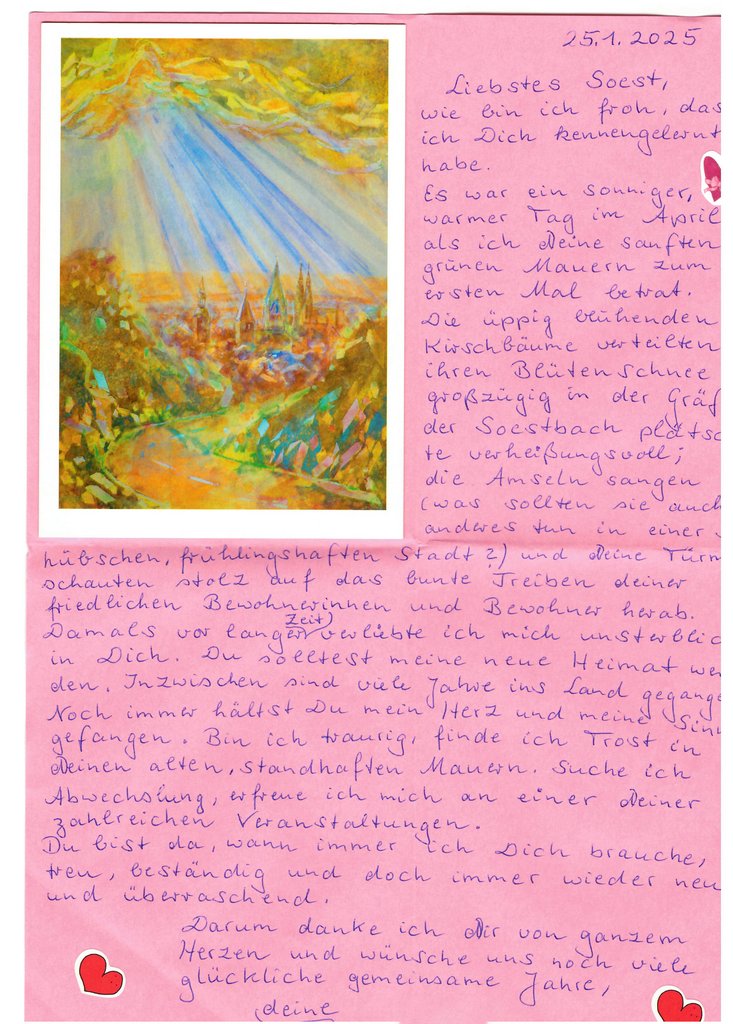 25.1.2025
Liebstes Soest,
wie bin ich froh, das
ich Dich kennengelernt
habe.
Es war ein sonniger,
warmer Tag im April
als ich Deine sanften
grünen Mauern zum
ersten Mal betrat.
Die üppig blühenden
Kirschbäume verteilten
ihren Blütenschnee
großzügig in der Gräf
der Soestbach plätsc
te verheißungsvoll;
die Amseln sangen
(was sollten sie auch
anderes tun in einer
hübschen, frühlingshaften Stadt?) und Deine Türm
schauten stolz auf das bunte Treiben deiner
friedlichen Bewohnerinnen und Bewohner herab.
Damals vor langer Zeit) verliebte ich mich unsterblic
in Dich. Du solltest meine neue Heimat wer
den. Inzwischen sind viele Jahre ins Land gegange
Noch immer hältst Du mein Herz und meine Sinn
gefangen. Bin ich traurig, finde ich Trost in
Deinen alten, standhaften Mauern. Suche ich
Abwechslung, erfreue ich mich an einer Deiner
zahlreichen Veranstaltungen.
Du bist da, wann immer ich Dich brauche,
treu, beständig und doch immer wieder neu
und überraschend.
Darum danke ich Dir von ganzem
Herzen und wünsche uns noch viele
glückliche gemeinsame Jahre,
deine